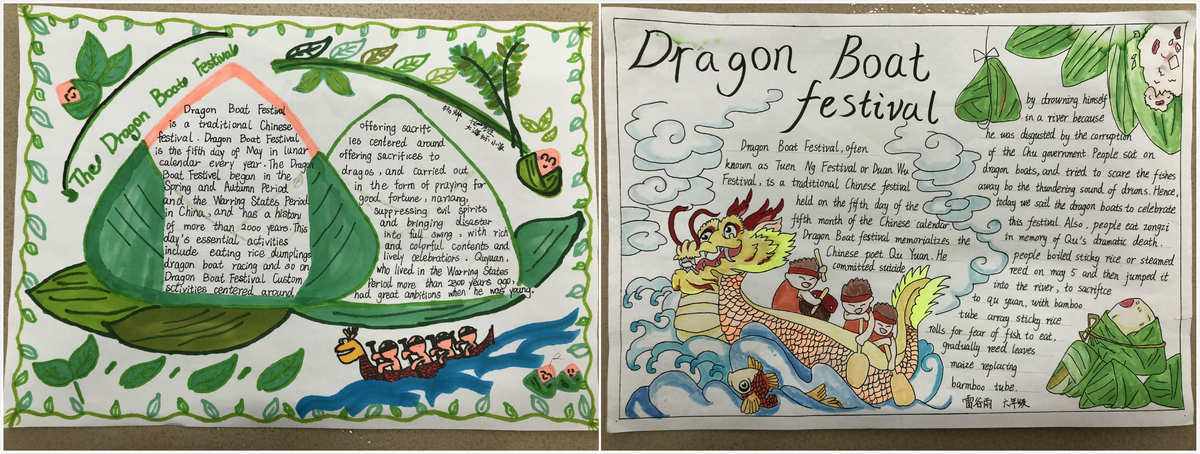 The Dragon Boat Festival
Dragon Boat Festival
is a traditional Chinese
festival. Dragon Boat Festival
is the fifth day of May in lunar
calendar every year. The Dragon
Boat Festivel began in the
Spring and Autumn Period
and the Warring States Period
in China, and has a history
of more than 2000 years. This
day's essential activities
include eating rice dumplings
dragon boat racing and so on
Dragon Boat Festival Custom
activities centered around
offering sacrif
ies centered around
offering sacrifices to
dragos, and carried out
in the form of praying for
good fortune, nariang,
suppressing evil spirits
and bringing disaster
into full swing, with rich
and colorful contents and
lively celebrations. Quyuan,
who lived in the Warring States
Period more than 2300 years ago,
had great ambitions when he was young.
Dragon Boat
festival
Dragon Boat Festival, often
known as Tuen Ng Festival or Duan Wu
Festival, is a traditional Chinese festival
held on the fifth day of the
fifth month of the Chinese calendar
Dragon Boat festival memorializes the
Chinese poet Qu Yuan. He
committed suicide
by drowning himself
in a river because
he was disgusted by the corruption
of the Chu government. People sat on
dragon boats, and tried to scare the fishes
away bo the thundering sound of drums. Hence,
today we sail the dragon boats to celebrate
this festival. Also, people eat zongzi
in memory of Qu's dramatic death.
people boiled sticky rice or steamed
reed on may 5 and then jumped it
into the river, to sacrifice
to qu yuan, with bamboo
tube array sticky rice
rolls for fear of fish to eat,
gradually reed leaves
maize replacing
barmboo tube.
雷谷雨 六年级